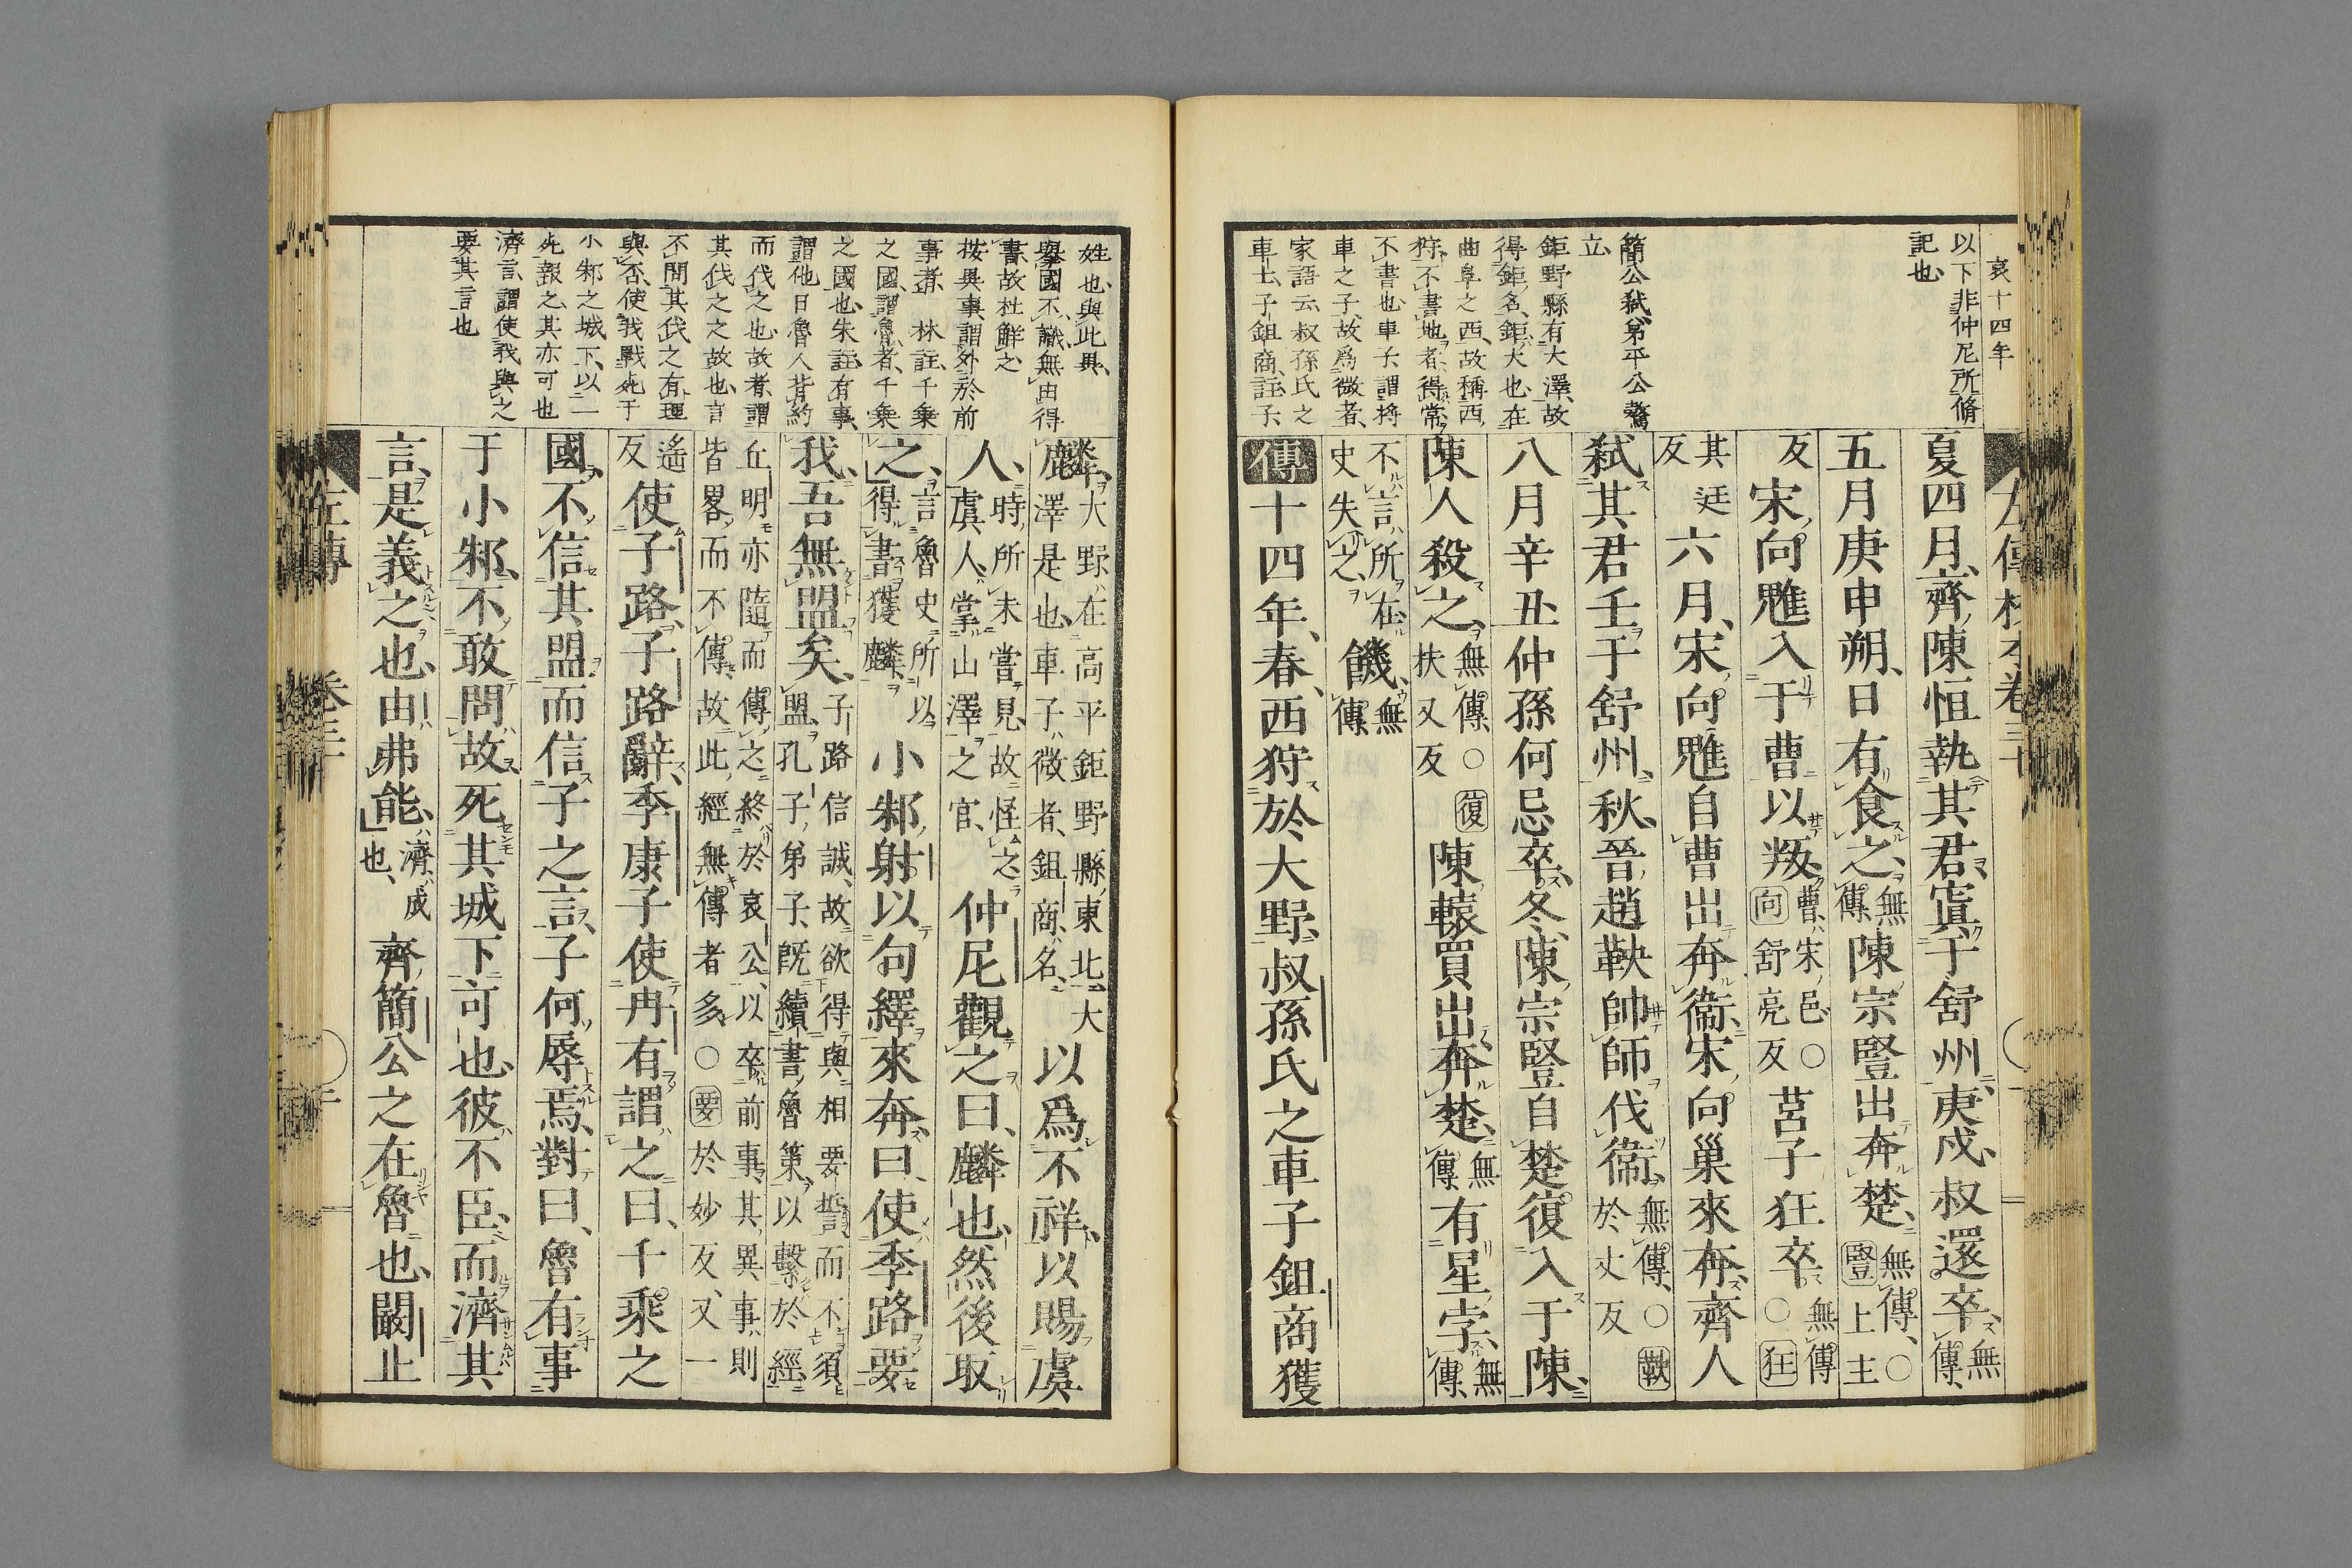 哀十四年
以下非仲尼所脩
記也
簡公弒弟平公驁
立
鉅野縣有大澤故
得鉅名鉅大也在
曲阜之西故稱西
狩不書地者得常
不書也車子謂將
車之子故爲微者
家語云叔孫氏之
車士子鉏商註子
左傳校本卷三十
夏四月、齊陳恒執其君、寘于舒州、庚戌、叔還卒、無傳、
五月庚申朔、日有食之、無傳陳宗豎出奔楚、無傳、○豎上主
反宋向魋入于曹以叛、曹、宋邑○向舒亮反莒子狂卒無傳○狂
其廷反六月、宋向魋自曹出奔衞、宋向巢來奔、齊人
弒其君壬于舒州、秋、晉趙鞅帥師伐衞、無傳、○鞅於丈反
八月辛丑仲孫何忌卒、冬、陳宗豎自楚復入于陳、
陳人殺之、無傳、○復扶又反陳轅買出奔楚、無傳有星孛、無傳、
不言所在、史失之、饑、無傳
傳十四年、春、西狩於大野、叔孫氏之車子鉏商獲
姓也與此異
擧國不識無由得
書故杜解之
按異事謂外於前
事者 林註千乘
之國謂魯者千乘
之國也朱註有事
謂他日魯人背約
而伐之也故者謂
其伐之之故也言
不問其伐之有理
與否使我戰死于
小邾之城下以一
死報之其亦可也
濟言謂使我與之
要其言也
麟、大野在高平鉅野縣東北、大澤是也、車子、微者、鉏商、名、以爲不祥、以賜虞
人、時所未嘗見、故怪之、虞人、掌山澤之官、仲尼觀之曰、麟也、然後取
之、言魯史所以得書獲麟、小邾射以句繹來奔、曰、使季路要
我、吾無盟矣、子路信誠、故欲得與相要誓、而不須盟、孔子弟子、旣續書魯策、以繫於經、
丘明亦隨而傳之、終於哀公、以卒前事、其異事則皆畧而不傳、故此經無傳者多、○要於妙反、又一
遙反使子路、子路辭、季康子使冉有謂之曰、千乘之
國、不信其盟而信子之言、子何辱焉、對曰、魯有事
于小邾、不敢問故、死其城下可也、彼不臣、而濟其
言、是義之也、由弗能、濟、成也、齊簡公之在魯也、闞止
左傳
卷三十